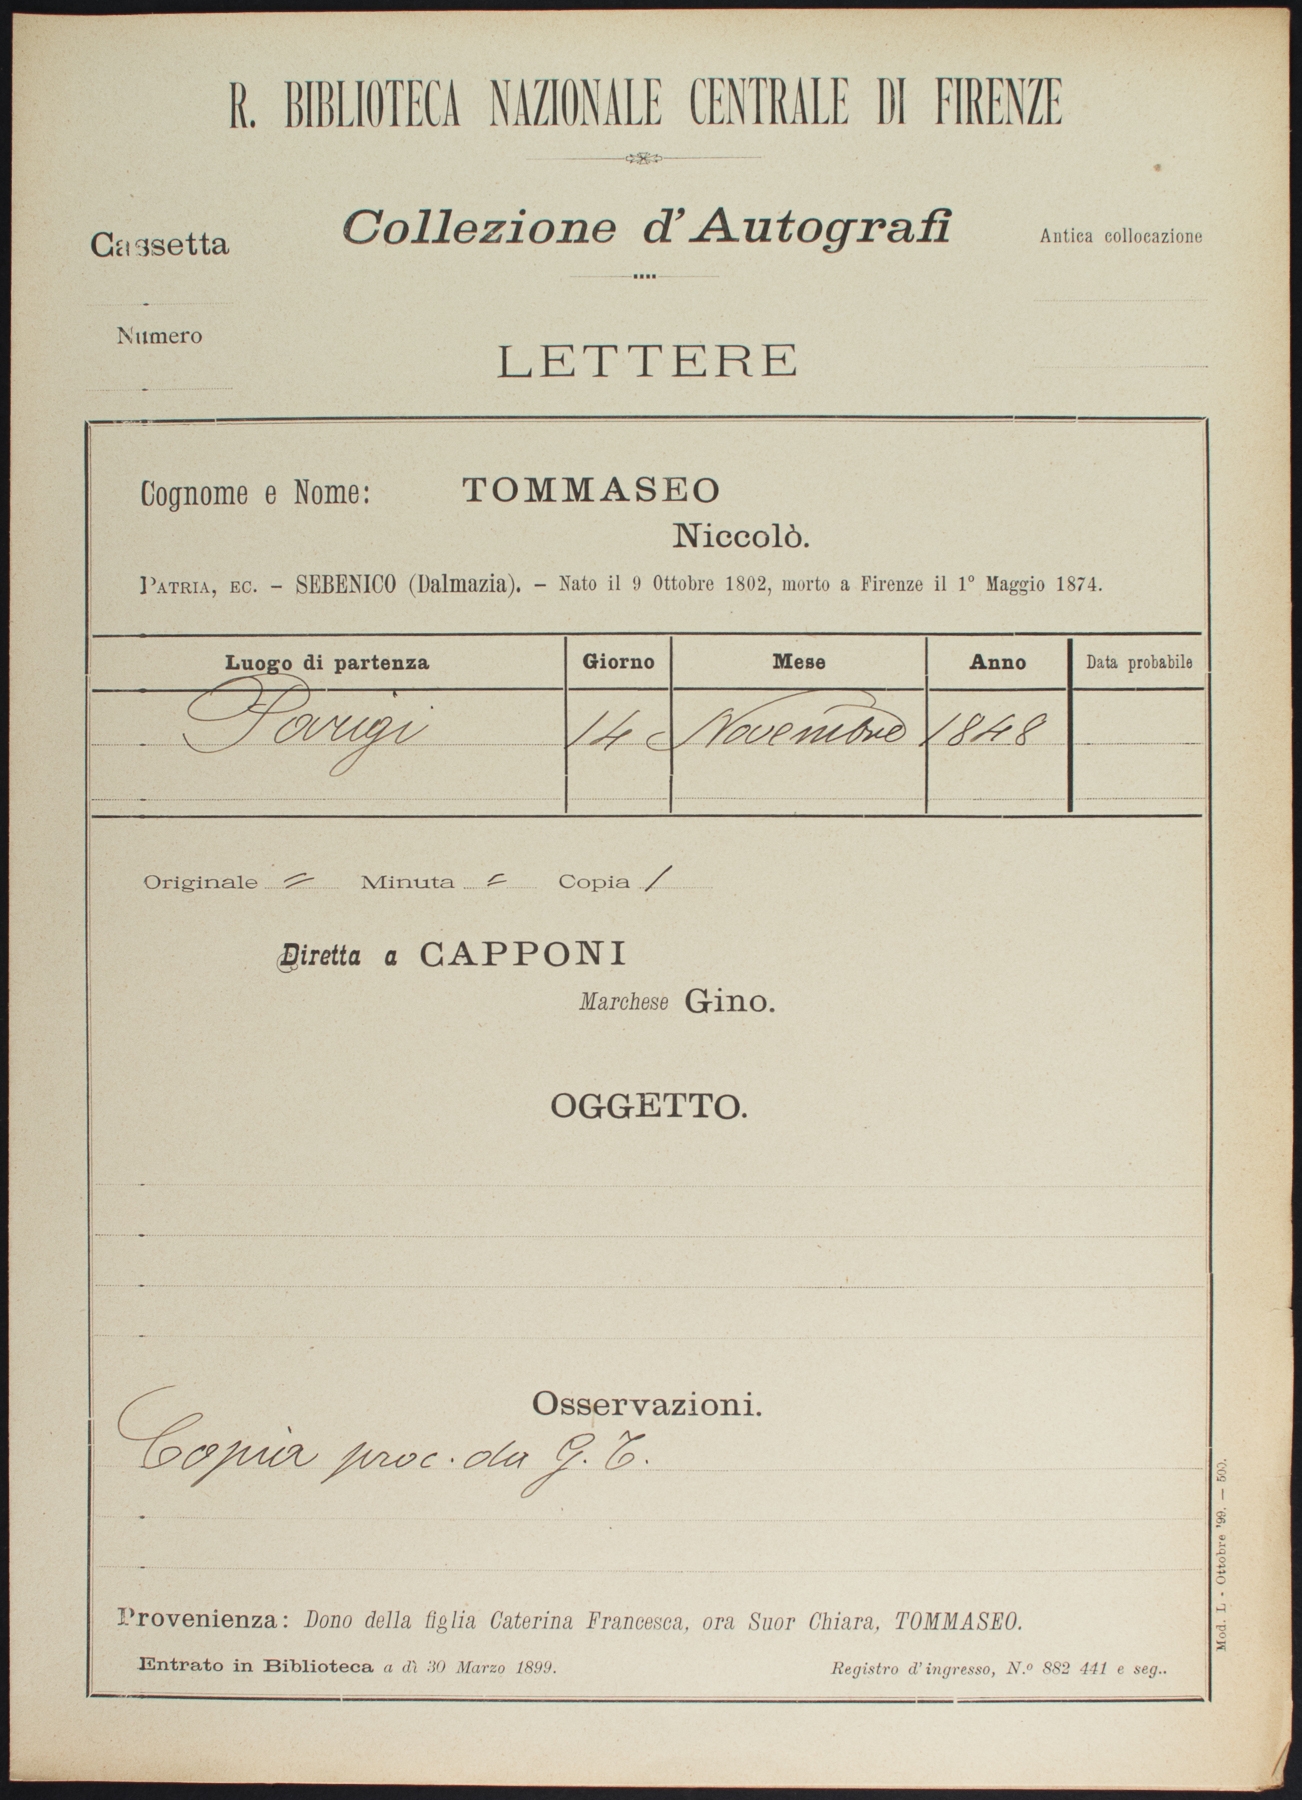 R. BIBLIOTECA NAZIONALE CENTRALE DI FIRENZE
Collezione d'Autografi
Cassetta
Antica collocazione
Numero
LETTERE
Cognome e Nome: TOMMASEO
Niccolò.
PATRIA, EC. – SEBENICO (Dalmazia). – Nato il 9 Ottobre 1802, morto a Firenze il 1° Maggio 1874.
Luogo di partenza Giorno Mese Anno Data probabile
Parigi 14 Novembre 1848
Originale = Minuta = Copia /
Diretta a CAPPONI
Marchese Gino.
OGGETTO.
Osservazioni.
Copia proc. da G. T.
Provenienza: Dono della figlia Caterina Francesca, ora Suor Chiara, TOMMASEO.
Entrato in Biblioteca a dì 30 Marzo 1899. Registro d'ingresso, N.º 882 441 e seg..
Mod. L - Ottobre '99. — 500.